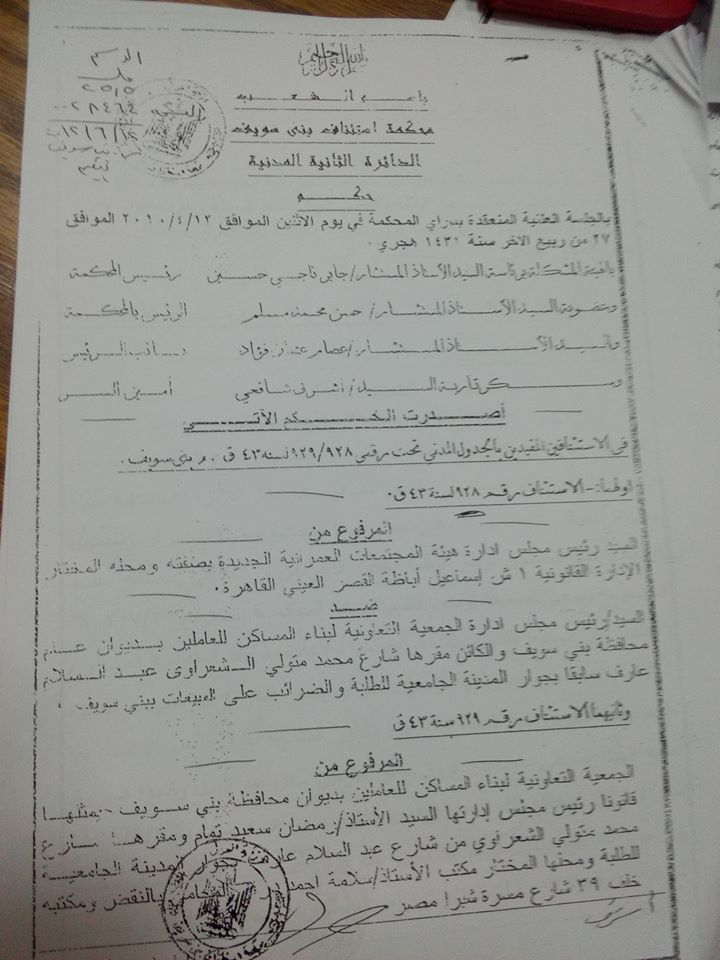 بسم الله الرحمن الرحيم
باسم الشعب
محكمة استئناف بنى سويف
الدائرة الثانية المدنية
حكم
بالجلسة العلنية المنعقدة بسراي المحكمة في يوم الاثنين الموافق ٢٠١٠/٤/١٢ الموافق
٢٧ من ربيع الاخر سنة ١٤٣١ هجري .
بالهيئة المشكلة برئاسة السيد الأستاذ المستشار/ جابر ناجي حسين رئيس المحكمة
وعضوية السيد الأستاذ المستشار/ حسن محمد مسلم الرئيس بالمحكمة
والسيد الأستاذ المستشار/ عصام عثمان فؤاد نائب الرئيس
وسكرتارية السيد/ أشرف شافعي أمين السر
أصدرت الحكم الآتي
في الاستئنافين المقيدين بالجدول المدني تحت رقمي ٩٢٩/٩٢٨ لسنة ٤٣ ق . م بني سويف .
اولهما:- الاستئناف رقم ٩٢٨ لسنة ٤٣ ق.
المرفوع من
السيد رئيس مجلس ادارة هيئة المجتمعات العمرانية الجديدة بصفته ومحله المختار
الإدارة القانونية ١ ش إسماعيل أباظة القصر العيني القاهرة .
ضد
السيد/رئيس مجلس ادارة الجمعية التعاونية لبناء المساكن للعاملين بديوان عام
محافظة بني سويف والكائن مقرها شارع محمد متولي الشعراوى عبد السلام
عارف سابقا بجوار المدينة الجامعية للطلبة والضرائب على المبيعات ببني سويف .
وثانيهما الاستئناف رقم ٩٢٩ سنة ٤٣ ق
المرفوع من
الجمعية التعاونية لبناء المساكن للعاملين بديوان محافظة بني سويف يمثلها
قانونا رئيس مجلس إدارتها السيد الأستاذ/ رمضان سعيد تمام ومقرها شارع
محمد متولي الشعراوي من شارع عبد السلام عارف بجوار المدينة الجامعية
للطلبة ومحلها المختار مكتب الأستاذ/سلامة احمد المحامى بالنقض ومكتبه
خلف ٣٩ شارع مسرة شبرا مصر